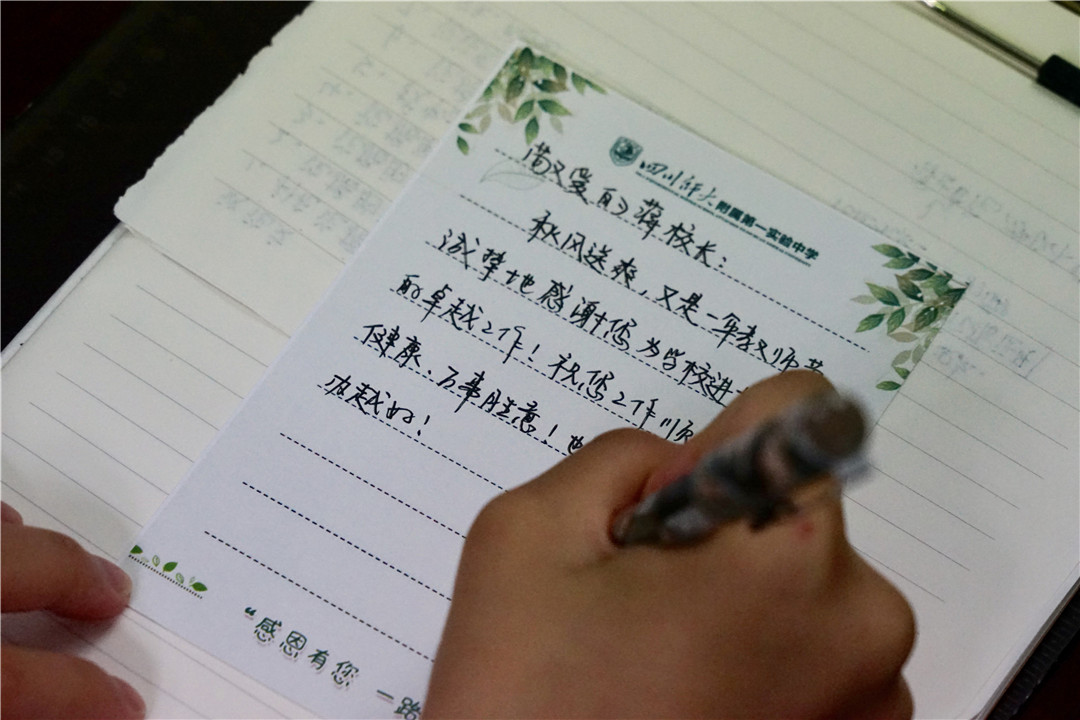 四川师大附属第一实验中学
敬爱的蒋校长：
秋风送爽，又是一年教师节
诚挚地感谢您为学校进
的卓越工作！祝您工作顺
健康、万事胜意！也
办越好！
“感恩有您 一路